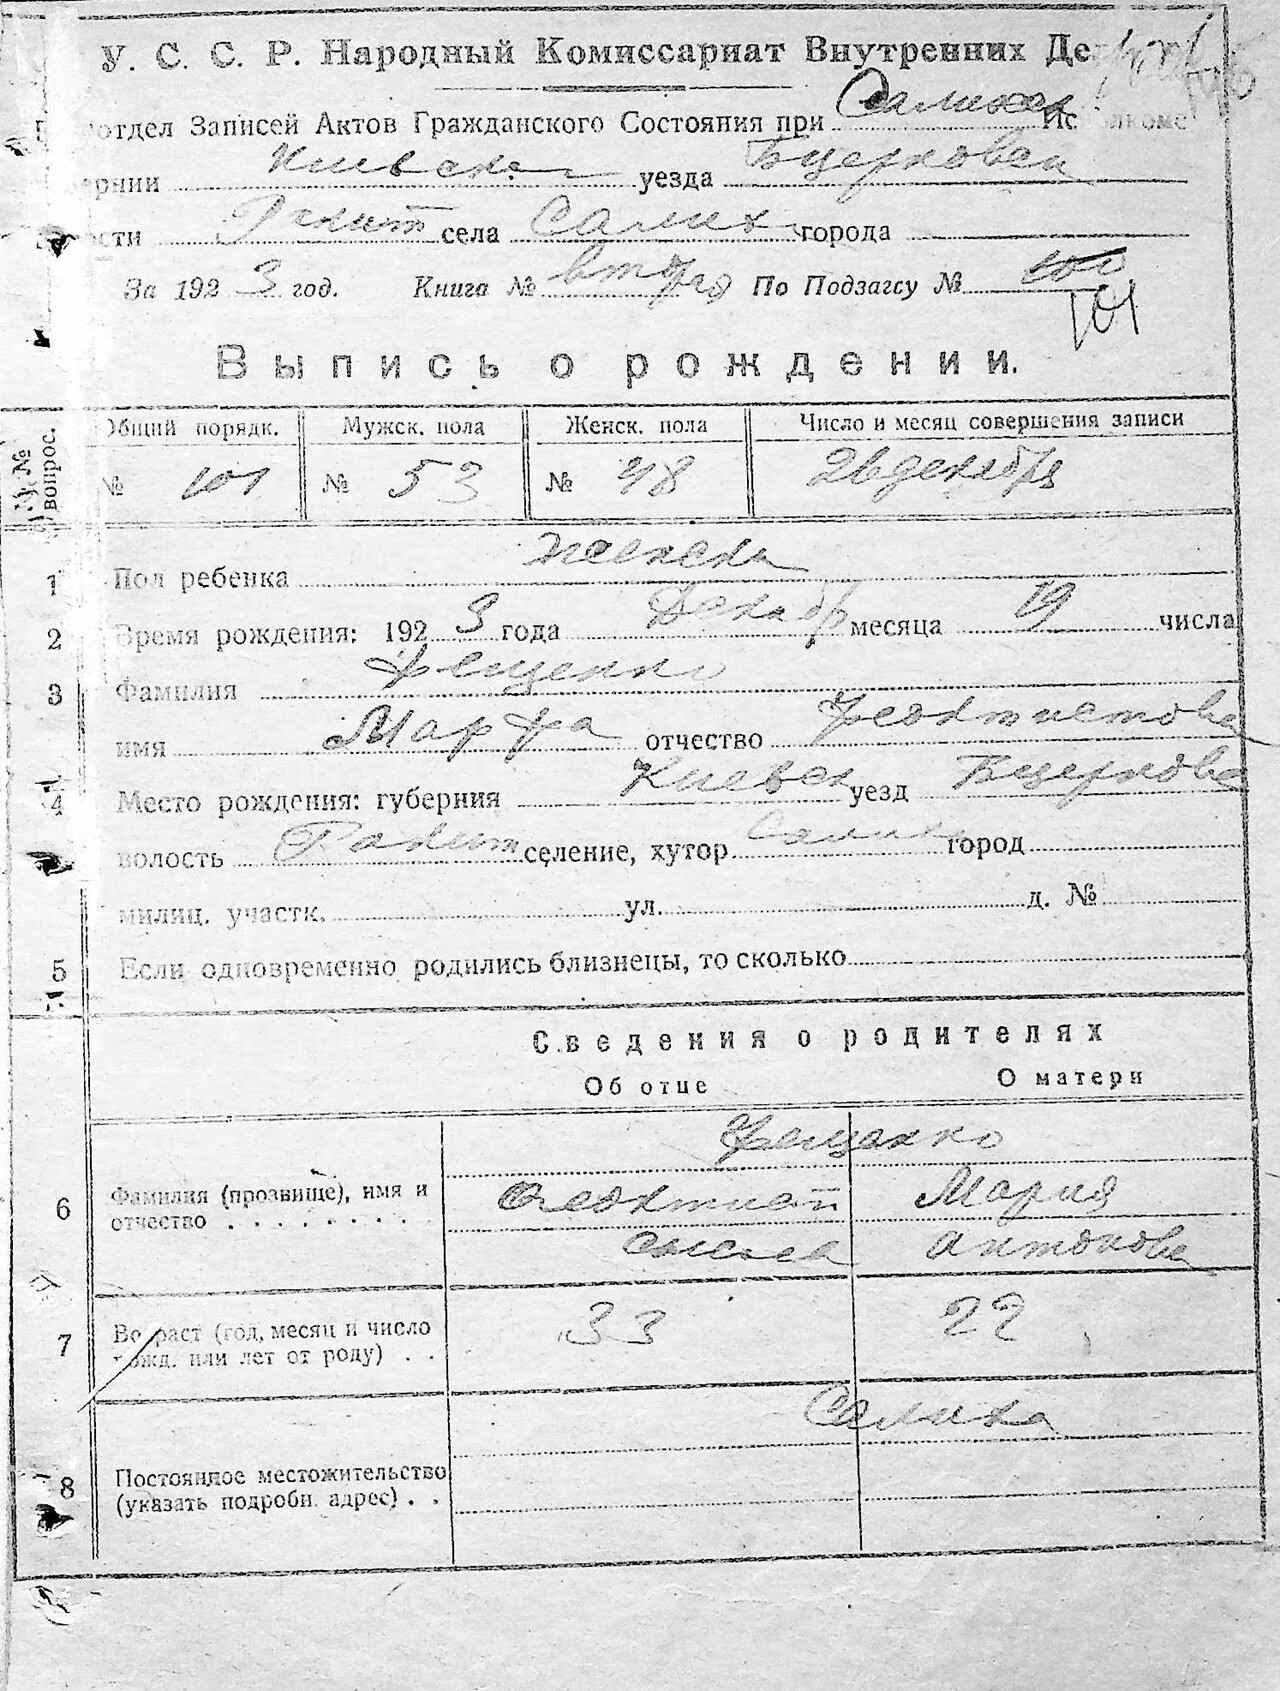 У. С. С. Р. Народный Комиссариат Внутренних Де
отдел Записей Актов Гражданского Состояния при
ернии Киевской уезда Бцерковск
сти Рокит села Салих города
За 1923 год. Книга № вторя По Подзагсу № 100
101
Выпись о рождении.
№№ вопрос.
Общий порядк. Мужск. пола Женск. пола Число и месяц совершения записи
№ 101 № 53 № 48 26 декабря
1 Пол ребенка женска
2 Время рождения: 1923 года Декабр месяца 19 числа
3 Фамилия Фещенко
имя Марфа отчество Феоктистова
4 Место рождения: губерния Киевск уезд Бцеркова
волость Рокит селение, хутор Салиха город
милиц. участк. ул. д. №
5 Если одновременно родились близнецы, то сколько
Сведения о родителях
Об отце О матери
Фещенко
6 Фамилия (прозвище), имя и отчество Феоктист Мария
Антонова
7 Возраст (год, месяц и число рожд. или лет от роду) 33 22
Салиха
8 Постоянное местожительство
(указать подробн. адрес)